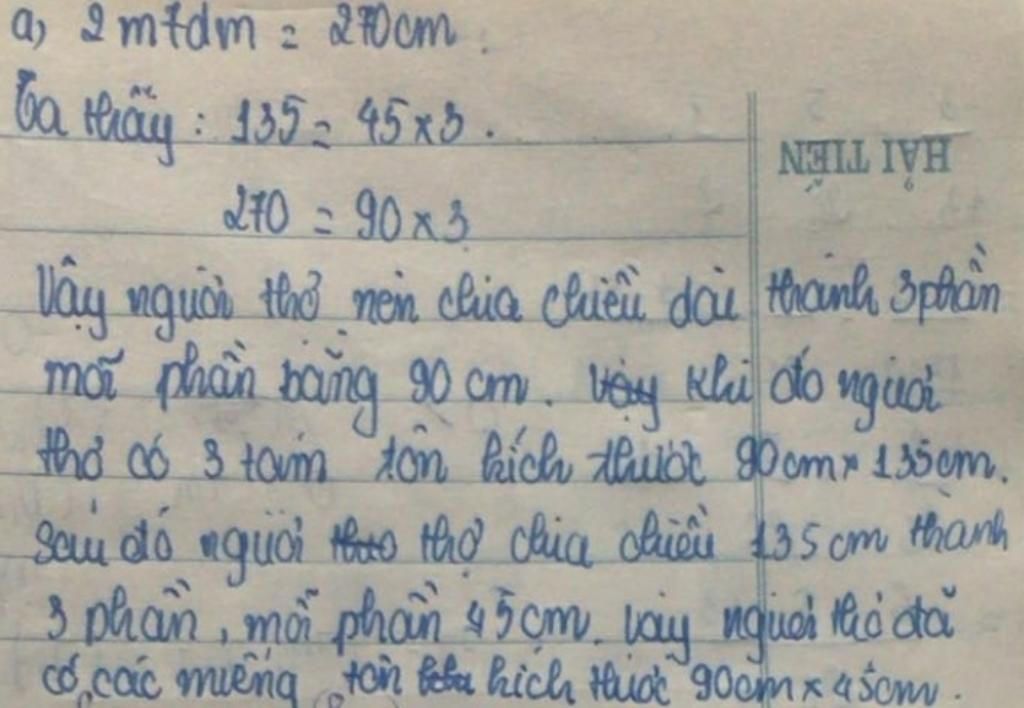 a) 2m7dm = 270cm.
Ta thấy : 135 = 45 x 3 .
HẢI TIẾN
270 = 90 x 3
Vậy người thợ nên chia chiều dài thành 3 phần
mỗi phần bằng 90 cm. Vậy Khi đó người
thợ có 3 tấm tôn kích thước 90cm x 135cm.
Sau đó người thợ chia chiều 135cm thành
3 phần, mỗi phần 45cm. Vậy người thợ đã
có các miếng tôn kích thước 90cm x 45cm.